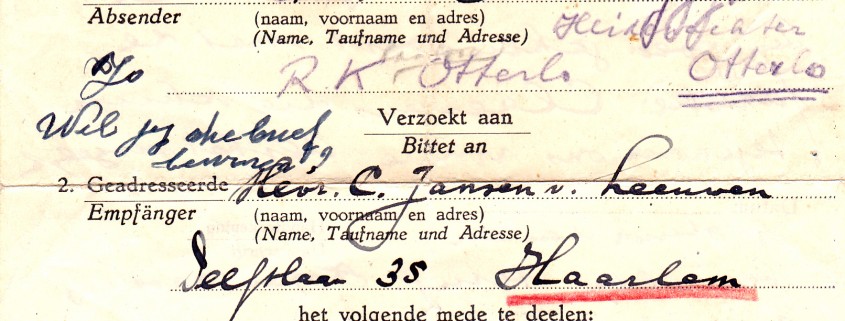 Absender (naam, voornaam en adres)
(Name, Taufname und Adresse)
Jo R K Otterlo Otterlo
Verzoekt aan
Wil jy die brief
Bittet an
bewaren?
2. Geadresseerde Heer. C. Jansen v. Leeuwen
Empfänger (naam, voornaam en adres)
(Name, Taufname und Adresse)
35 Haarlem
het volgende mede te deelen: